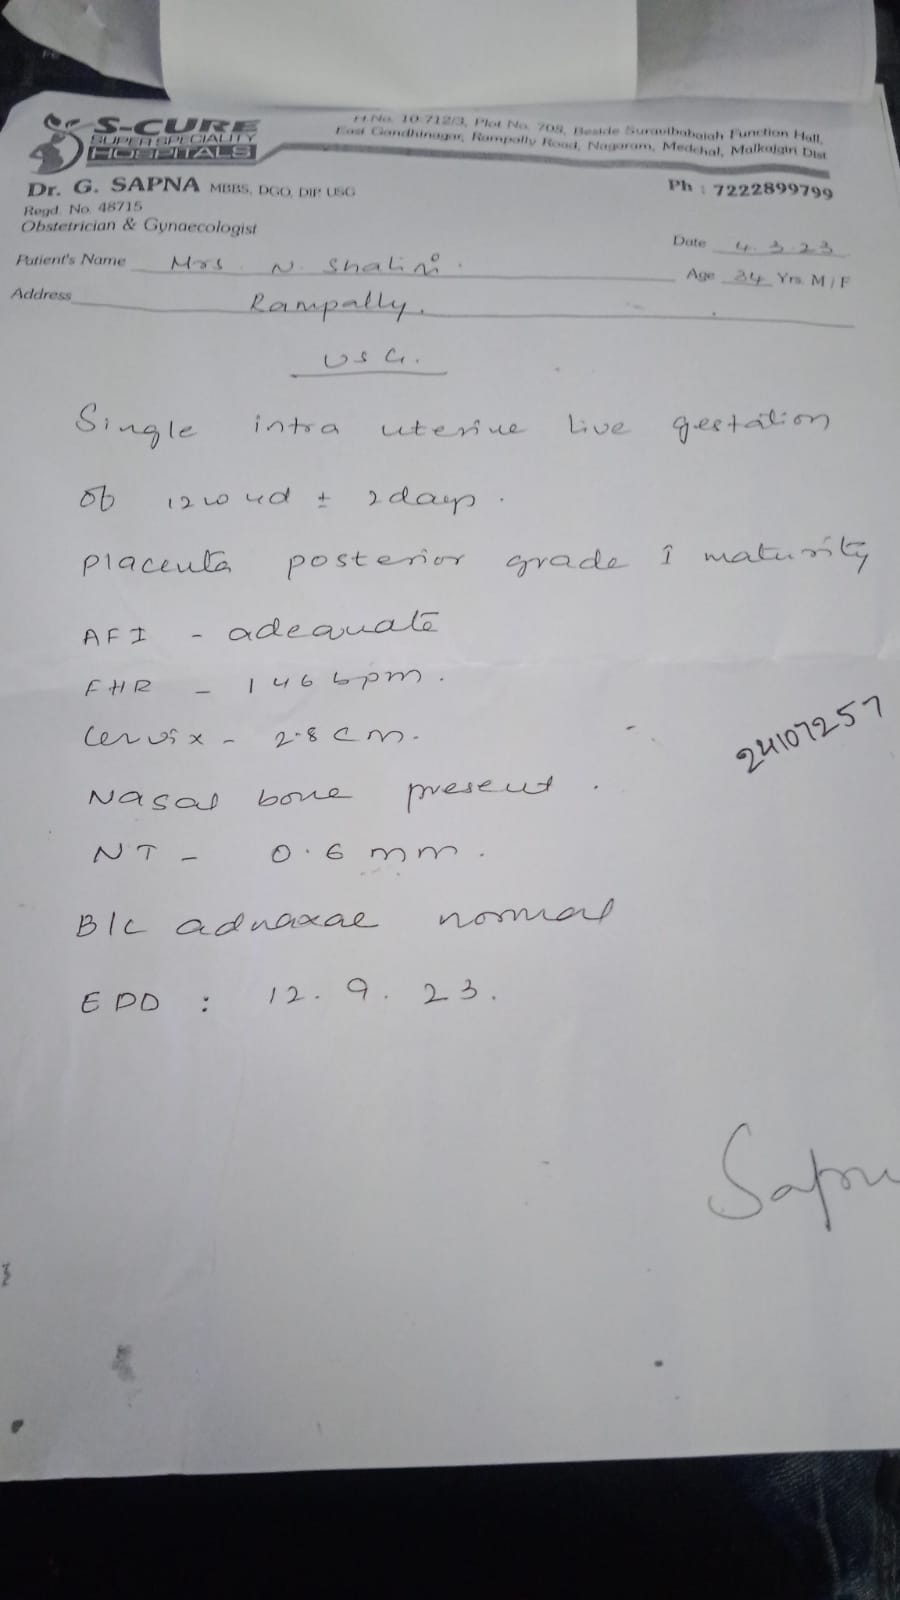 S-CURE
SUPER SPECIALITY
HOSPITALS
H.No. 10-712/3, Plot No. 708, Beside Suravibabaiah Function Hall,
East Gandhinagar, Rampally Road, Nagaram, Medchal, Malkajgiri Dist
Dr. G. SAPNA MBBS, DGO, DIP USG
Regd. No. 48715
Obstetrician & Gynaecologist
Ph : 7222899799
Date 4.3.23
Patient's Name Mrs. N. Shalini.
Age 34 Yrs. M / F
Address Rampally.
USG.
Single intra uterine live gestation
of 12w4d ± 2days.
Placenta posterior grade I maturity
AFI - adequate
FHR - 146 bpm.
Cervix - 2.8 cm.
24107257
Nasal bone present.
NT - 0.6 mm.
B/L adnaxae normal
EDD : 12.9.23.